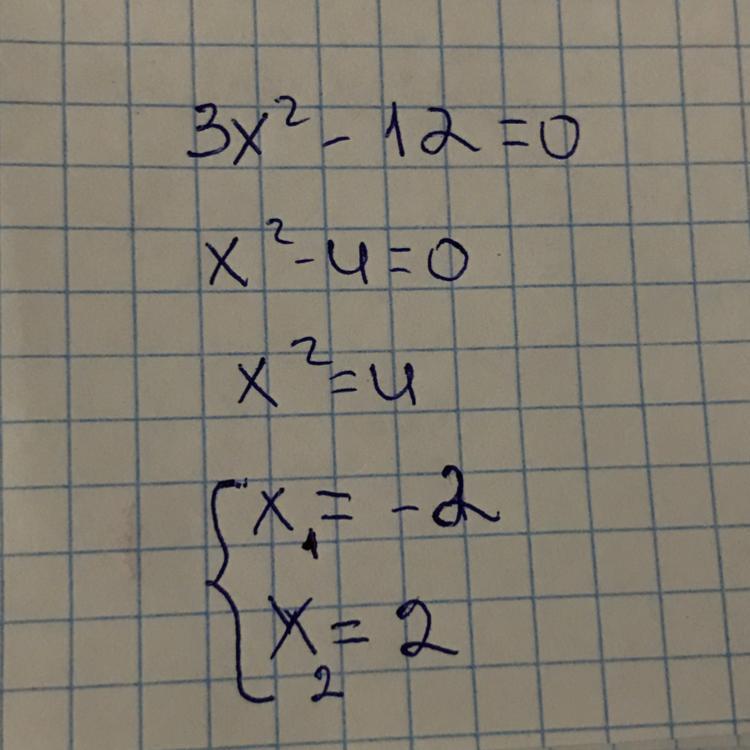 3x² - 12 = 0
x² - 4 = 0
x² = 4
{ x₁ = -2
x₂ = 2